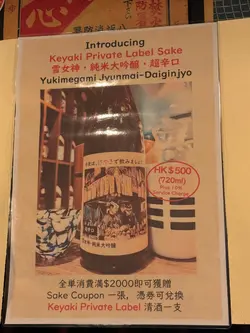 Introducing
Keyaki Private Label Sake
雪女神・純米大吟醸・超辛口
Yukimegami Jyunmai-Daiginjyo
HK$500
(720ml)
Plus 10%
Service Charge
純米大吟醸
全單消費滿$2000即可獲贈
Sake Coupon 一張, 憑券可兌換
Keyaki Private Label 清酒一支